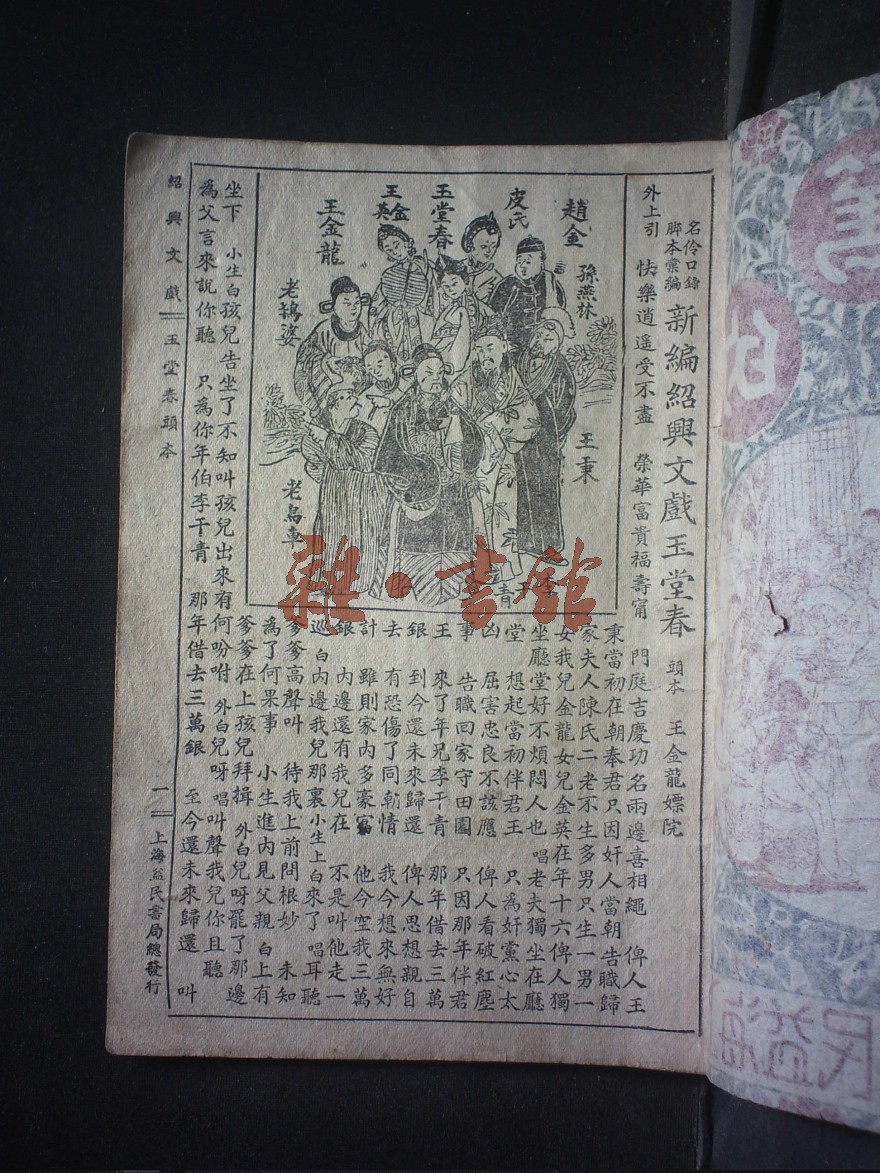 名伶口錄
脚本彙編
新編紹興文戲玉堂春
頭本
王金龍嫖院
外上引 快樂逍遥受不盡 榮華富貴福壽甯
門庭吉慶功名兩邊喜相繩 俾人王
秉當初在朝奉君只因奸人當朝告職歸
家夫人陳氏二老不生多男只生一男一
女我兒金龍女兒金英在年十六俾人獨
坐廳堂好不煩悶人也 唱老夫獨坐在廳
堂 想起當初伴君王 只為奸黨心太
凶 屈害忠良不該應 俾人看破紅塵
事 告職回家守田園 只因那年伴君
王 來了年兄李干青 那年借去三萬
銀 到今還未來歸還 俾人思想親自
去 有恐傷了同朝情 我今想來無好
計 雖則家內多豪富 他今空我三萬
銀 內邊還有我兒在 不是叫他走一
巡 白內邊我兒那裏 小生上白來了 唱耳聽
爹爹高聲叫 待我上前問根妙 未知
為了何果事 小生進內見父親 白上有
爹爹在上孩兒拜揖 外白兒呀罷了那邊
坐下 小生白孩兒告坐了不知叫孩兒出來有何吩咐 外白兒呀 唱叫聲我兒你且聽
為父言來說你聽 只為你年伯李干青 那年借去三萬銀 至今還未來歸還 叫
趙金
孫燕林
皮氏
玉堂春
王金英
王金龍
老鴇婆
王秉
老烏車
李
青
紹興文戲
玉堂春頭本
一
上海益民書局總發行
雜·書館